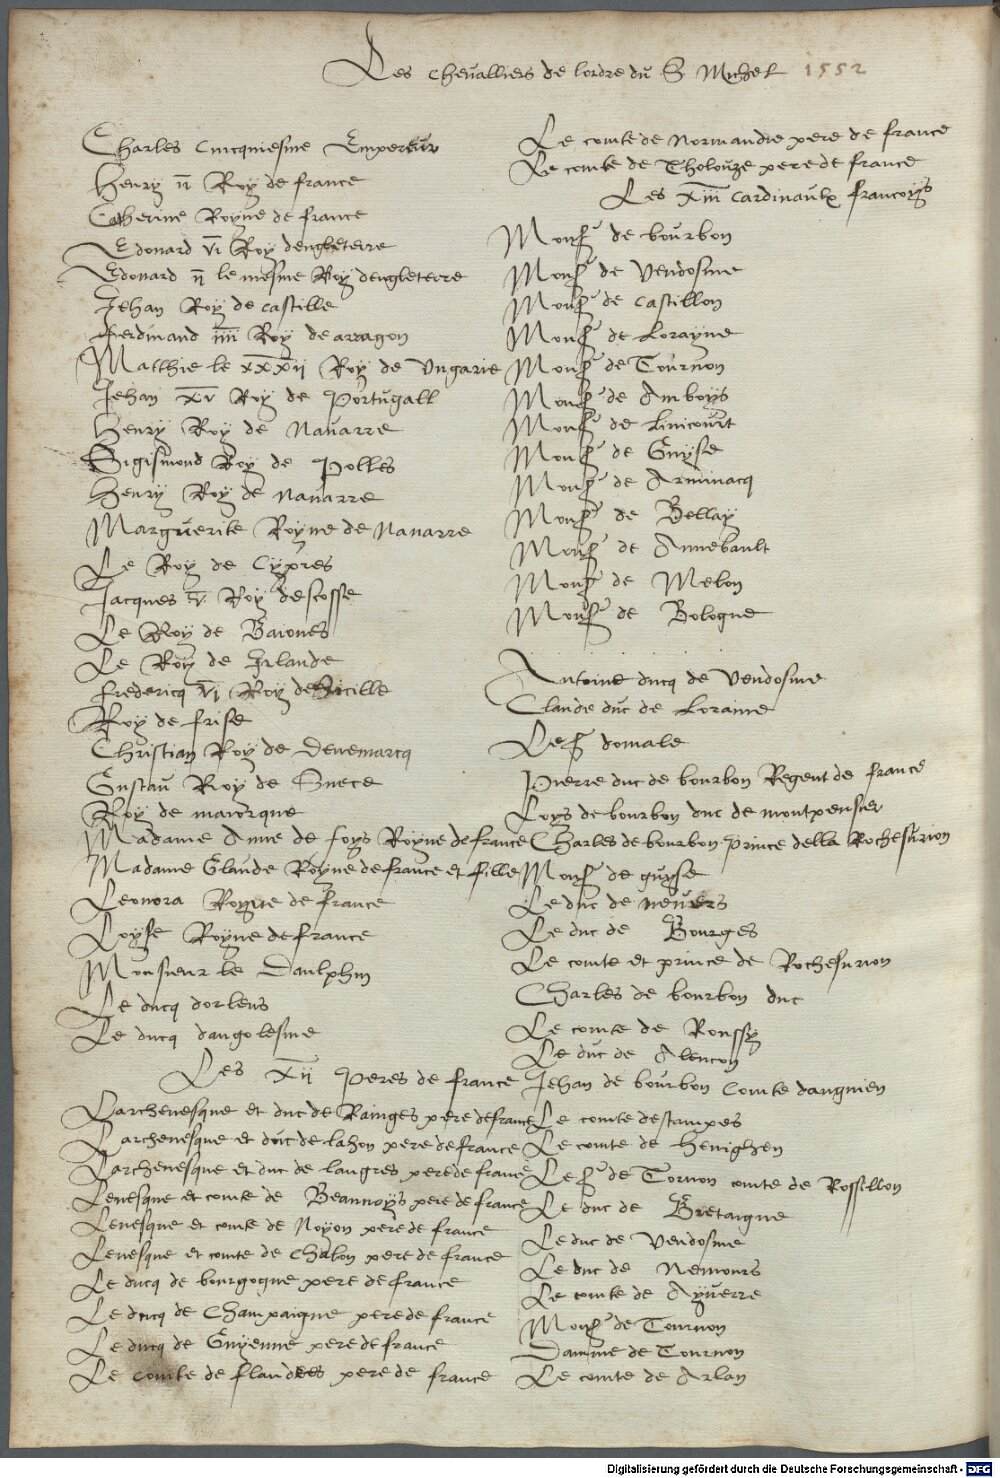 Les Chevalliers de lordre du S Michel 1552
Charles Cincquiesme Empereur
Henry ii Roy de france
Catherine Royne de france
Edouard vi Roy dengleterre
Edouard ii le mesme Roy dengleterre
Jehan Roy de castille
ferdinand iiii Roy de arragon
Matthie le xxxii Roy de Ungarie
Jehan xv Roy de Portugall
Henry Roy de Navarre
Sigismond Roy de Polles
Henry Roy de Navarre
Marguerite Royne de Navarre
Le Roy de Cypres
Jacques v Roy descosse
Le Roy de Baiones
Le Roy de Irlande
fredericq vi Roy de Sicille
Roy de frise
Christian Roy de Denemarcq
Gustau Roy de Suece
Roy de maiorque
Madame Anne de foys Royne de france
Madame Glaude Royne de france et fille
Leonora Royne de france
Loyse Royne de france
Monsieur le Daulphin
Le ducq dorleus
Le ducq dangolesme
Les xii Peres de france
Larchevesque et duc de Rainges pere de france
Larchevesque et duc de lahon pere de france
Larchevesque et duc de langres pere de france
Levesque et comte de Beauvoys pere de france
Levesque et comte de Noyon pere de france
Levesque et comte de Chalon pere de france
Le ducq de bourgogne pere de france
Le ducq de Champaigne pere de france
Le ducq de Guyenne pere de france
Le comte de flandres pere de france
Le comte de Normandie pere de france
Le comte de Tholouze pere de france
Les xiii Cardinaulx francoys
Mons de bourbon
Mons de Vendosme
Mons de Castillon
Mons de Lorayne
Mons de Tournon
Mons de Amboys
Mons de Linicourt
Mons de Guyse
Mons de Arminacq
Mons de Bellay
Mons de Annebault
Mons de Melon
Mons de Bologne
Antoine ducq de Vendosme
Claude duc de Loraine
Le S domale
Pierre duc de bourbon Regent de france
Loys de bourbon duc de montpensier
Charles de bourbon prince della Rochesurion
Mons de guyse
Le duc de nevers
Le duc de Bourges
Le comte et prince de Rochesurion
Charles de bourbon duc
Le comte de Roussy
Le duc de Alencon
Jehan de bourbon Comte danguien
Le comte destampes
Le comte de Henighen
Le S de Tornon comte de Rossillon
Le duc de Bretaigne
Le duc de Vendosme
Le duc de Nemours
Le comte de Ayverre
Mons de Tournon
Damme de Tournon
Le comte de Arlan
Digitalisierung gefördert durch die Deutsche Forschungsgemeinschaft - DFG